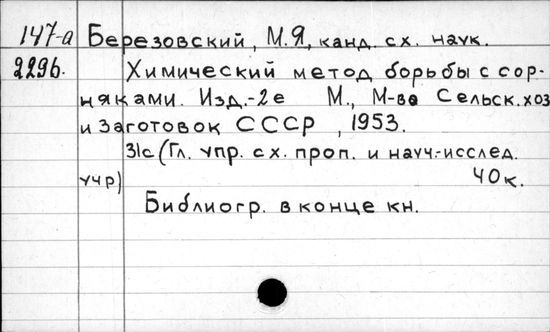 147-а Березовский, М.Я, канд. сх. наук.
229б. Химический метод борьбы с сор-
няками. Изд.-2е М., М-во Сельск. хоз
и Заготовок СССР, 1953.
31с (Гл. упр. с.х. проп. и науч.-исслед.
учр) 40к.
Библиогр. в конце кн.